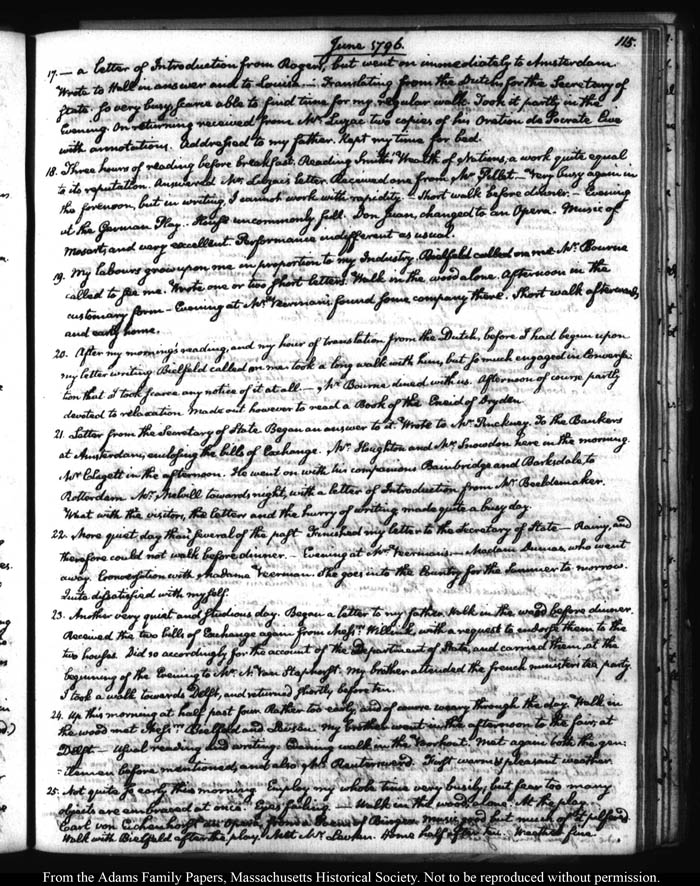 June 1796.
115.
17. — a letter of Introduction from Rogers, but went on immediately to Amsterdam.
Wrote to Hall in answer and to Louisa. — Translating from the Dutch for the Secretary of
State. So very busy, scarce able to find time for my regular walk. Took it partly in the
Evening. On returning received from Mr. Luzac two copies of his Oration de Socrate Cive
with annotations. Addressed to my father. Kept my time for bed.
18. Three hours of reading before breakfast. Reading Smith's Wealth of Nations, a work quite equal
to its reputation. Answered Mr. Luzac's letter. Received one from Mr. Pellet. Very busy again in
the forenoon, but in writing, I cannot work with rapidity. — Short walk before dinner. — Evening
at the German Play. House uncommonly full. Don Juan, changed to an Opera. Music of
Mozart, and very excellent. Performance indifferent as usual.
19. My labours grow upon me in proportion to my Industry. Bielfeld called on me. Mr. Bourne
called to see me. Wrote one or two short letters. Walk in the wood alone. Afternoon in the
customary form — Evening at Mr. Veerman's found some company there. Short walk afterwards,
and early home.
20. After my morning's reading, and my hour of translation from the Dutch, before I had begun upon
my letter writing Bielfeld called on me. took a long walk with him, but so much engaged in Conversa:
tion that I took scarce any notice of it at all. — Mr. Bourne dined with us. Afternoon of course partly
devoted to relaxation. Made out however to read a Book of the Eneid of Dryden.
21. Letter from the Secretary of State. Began an answer to it. Wrote to Mr. Pinckney. To the Bankers
at Amsterdam, enclosing the bills of Exchange. Mr. Heighton and Mr. Snowdon here in the morning.
Mr. Clagett in the afternoon. He went on with his companions Bainbridge and Barksdale, to
Rotterdam. Mr. Melvill towards night, with a letter of Introduction from Mr. Beeldemaker.
What with the visitors, the letters and the hurry of writing made quite a busy day.
22. More quiet day than several of the past. Finished my letter to the Secretary of State — Rainy, and
therefore could not walk before dinner. — Evening at Mr. Veerman's. — Madam Dumas, who went
away. Conversation with Madame Veerman. She goes into the Country for the Summer to morrow.
Quite dissatisfied with myself.
23. Another very quiet and studious day. Began a letter to my father. Walk in the wood before dinner.
Received the two bills of Exchange again from Messrs. Willink, with a request to endorse them to the
two houses. Did so accordingly for the account of the Department of State, and carried them, at the
beginning of the Evening to Mr. N. Van Staphorst. My brother attended the french minister's tea party.
I took a walk towards Delft, and returned shortly before ten.
24. Up this morning at half past four. Rather too early, and of course weary through the day. Walk in
the wood met Messrs. Bielfeld and Levsen. My brother went in the afternoon to the fair, at
Delft — Usual reading and writing. Evening walk in the Voorhout. Met again both the gen:
:tlemen before mentioned, and also Mr. First warm & pleasant weather.
25. Not quite so early this morning. Employ my whole time very busily, but fear too many
objects are embraced at once. Eyes failing. — Walk in the wood, alone. At the play
Earl von Eichenhorst an Opera, from a Poem of Bürger. Music good but much of it pilfered.
Walk with Bielfeld after the play. Met Mr. Levsen. Home half after ten. Weather fine.
From the Adams Family Papers, Massachusetts Historical Society. Not to be reproduced without permission.